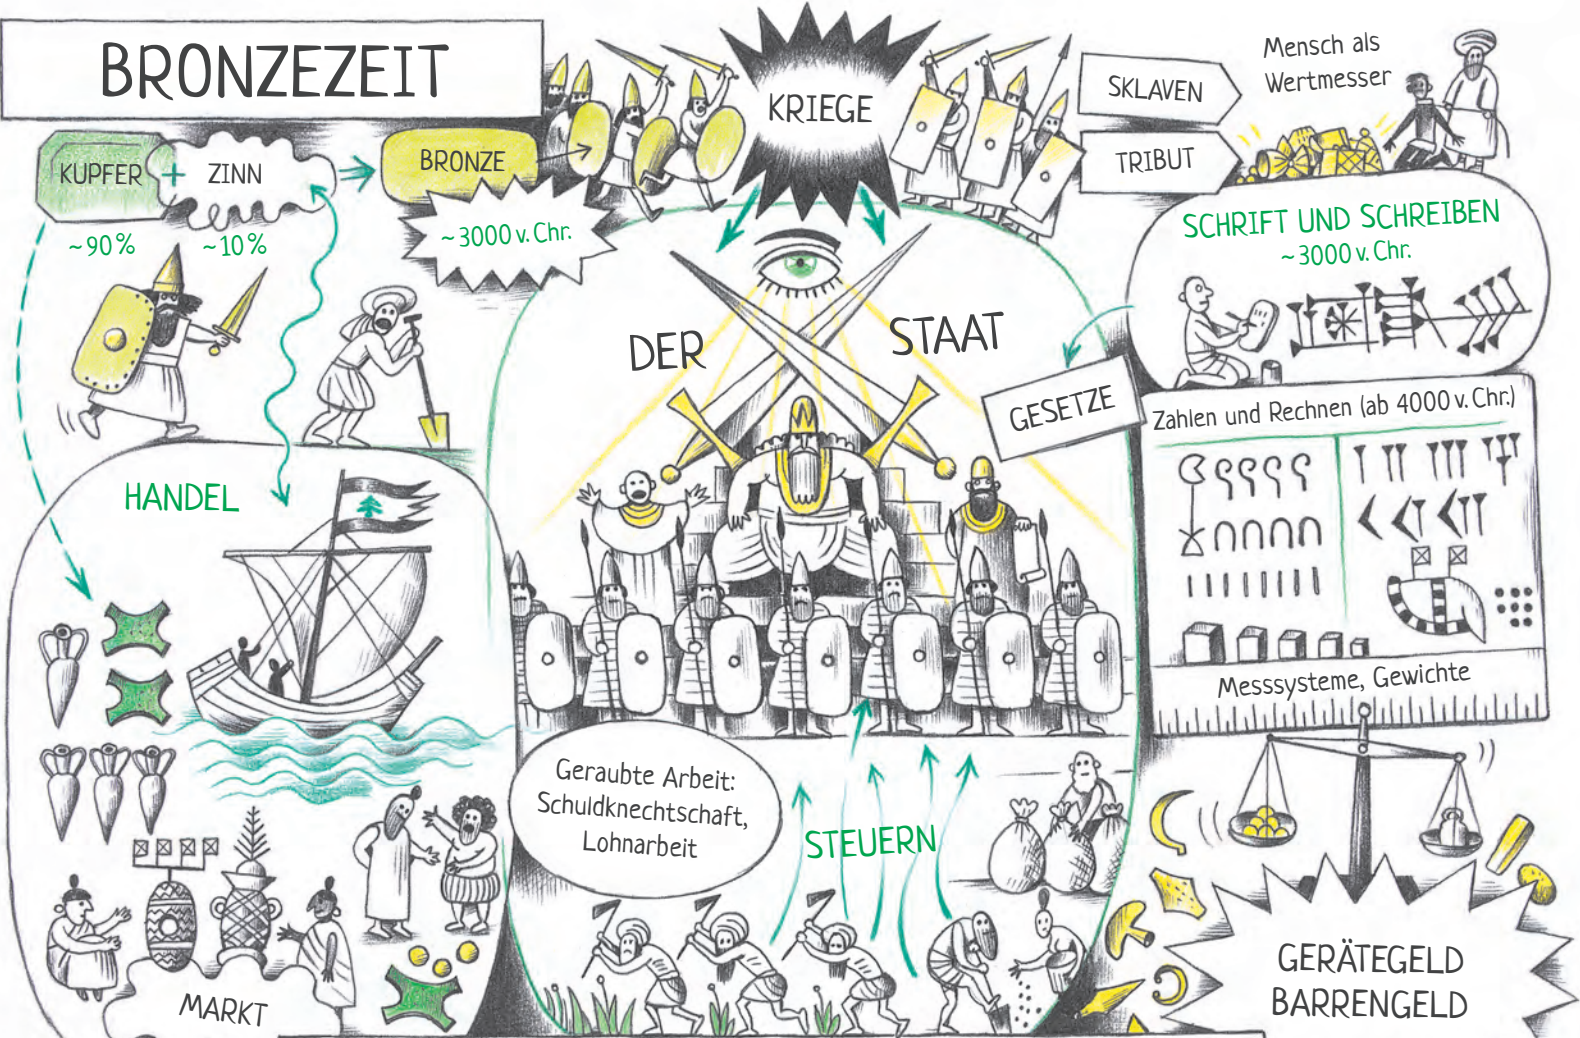 BRONZEZEIT
KUPFER + ZINN
~90 %
~10 %
BRONZE
~3000 v. Chr.
KRIEGE
SKLAVEN
TRIBUT
Mensch als
Wertmesser
SCHRIFT UND SCHREIBEN
~3000 v. Chr.
DER STAAT
GESETZE
Zahlen und Rechnen (ab 4000 v. Chr.)
Messsysteme, Gewichte
HANDEL
MARKT
Geraubte Arbeit:
Schuldknechtschaft,
Lohnarbeit
STEUERN
GERÄTEGELD
BARRENGELD